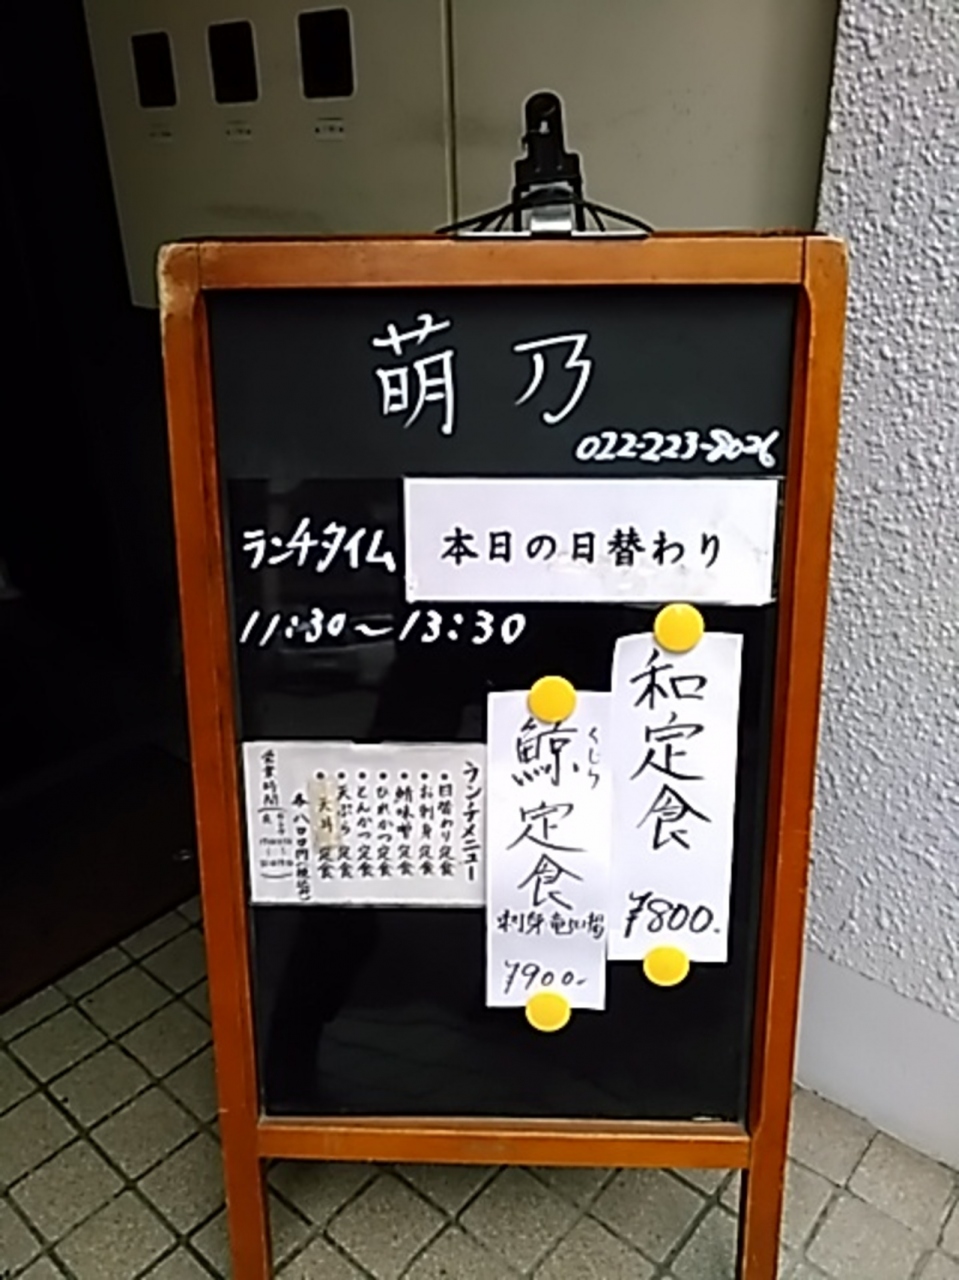 萌乃
022-223-8026
ランチタイム
本日の日替わり
11:30〜13:30
和定食
¥800.
くじら
鯨定食
刺身 竜田揚
¥900-
ランチメニュー
●日替わり定食
●お刺身定食
●鯖味噌定食
●ひれかつ定食
●とんかつ定食
●天ぷら定食
●天丼 定食
各八〇〇円
営業時間